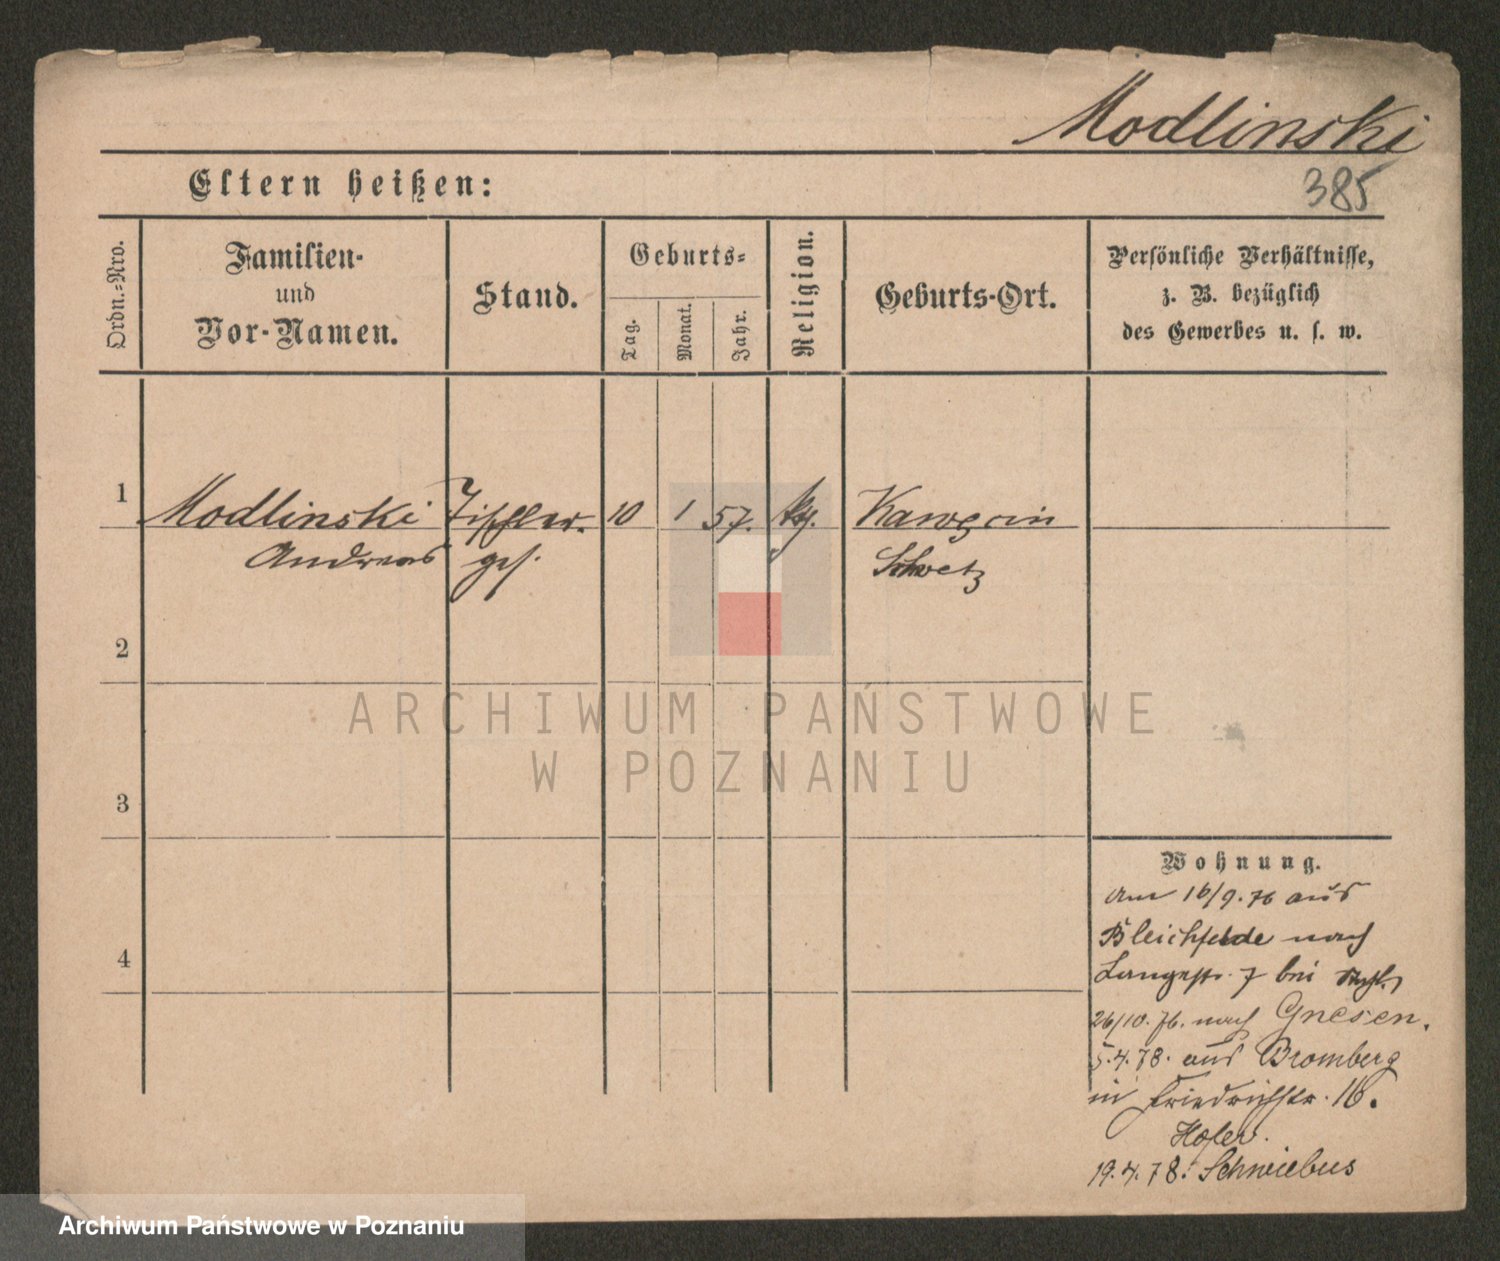 Modlinski
385
Eltern heißen:
Ordn.-Nro.
Familien-
und
Vor-Namen.
Stand.
Geburts-
Tag.
Monat.
Jahr.
Religion.
Geburts-Ort.
Persönliche Verhältnisse,
z. B. bezüglich
des Gewerbes u. s. w.
1 Modlinski Tischler 10 1 57. Kawęcin
Andreas ges. Schwetz
2
ARCHIWUM PAŃSTWOWE
W POZNANIU
3
4
Wohnung.
Am 16/9.76 aus
Bleichfelde nach
Langestr. 7 bei
26/10.76. nach Gnesen.
5.4.78. aus Bromberg
in Friedrichstr. 16.
Hofer.
19.4.78. Schwiebus
Archiwum Państwowe w Poznaniu